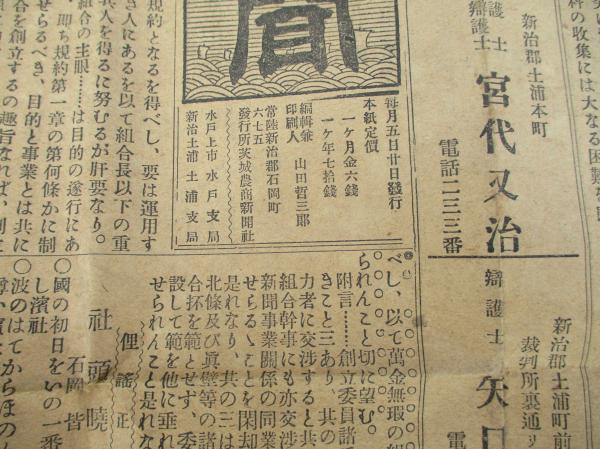 新治郡土浦町前
裁判所裏通り
辯護士 矢口
電
新治郡土浦本町
護士
辯護士 宮代又治
電話二三三番
聞
毎月五日廿日發行
本紙定價
一ケ月金六錢
一ケ年七拾錢
編輯兼
印刷人 山田哲三郎
常陸新治郡石岡町
六七五
發行所茨城農商新聞社
水戸上市 水戸支局
新治土浦 土浦支局
規約となるを得べし、要は運用す
き人にあるを以て組合長以下の重
人を得るに努むるが肝要なり。
組合の主眼……は目的の遂行にあ
即ち規約第一章の第何條かに制
せらるべき、目的と事業とは共に
合を創立するの趣旨なれば、則に
べし、以て萬金無瑕の組
られんこと切に望む。
附言……創立委員諸
きこと三あり、其の
力者に交渉すると共
組合幹事にも亦交渉
新聞事業關係の同業
せらるゝことを閑却
是れなり、其の三は
北條及び眞壁等の諸
合抔を範とせず、委
設して範を他に垂れ
せられんこと是れな
俚謠正
社頭曉
石岡 皆
○國の初日をいの一番
し濱社
○波のはてからほの